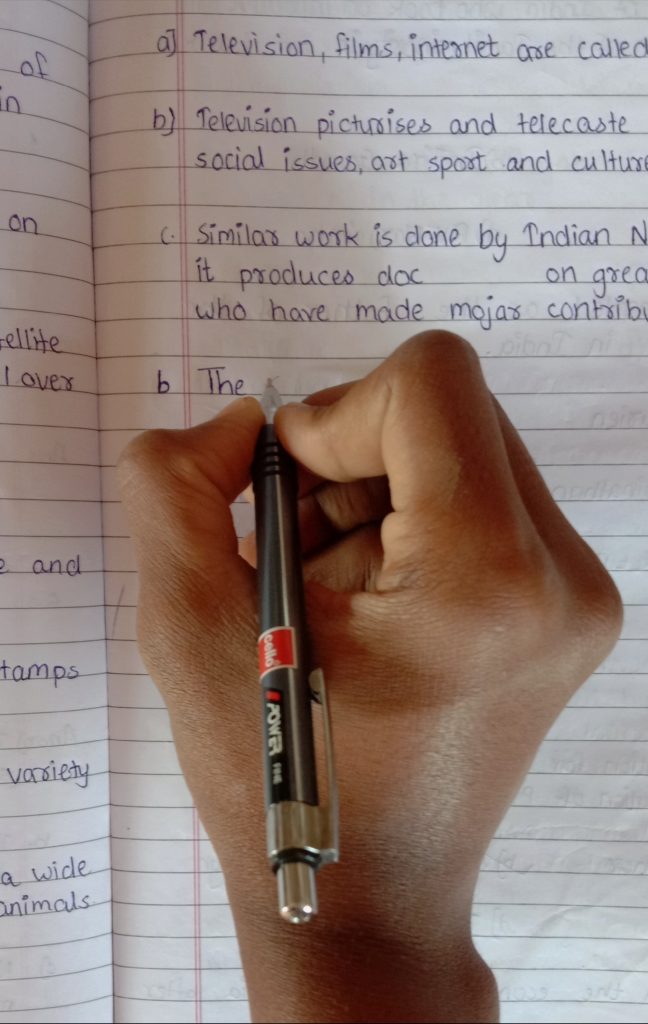 of
in
on
ellite
l over
and
tamps
variety
a wide
animals
a) Television, films, internet are called
b) Television picturises and telecaste
social issues, art sport and culture
c. Similar work is done by Indian N
it produces doc on grea
who have made mojar contribu
b The
cello
POWER